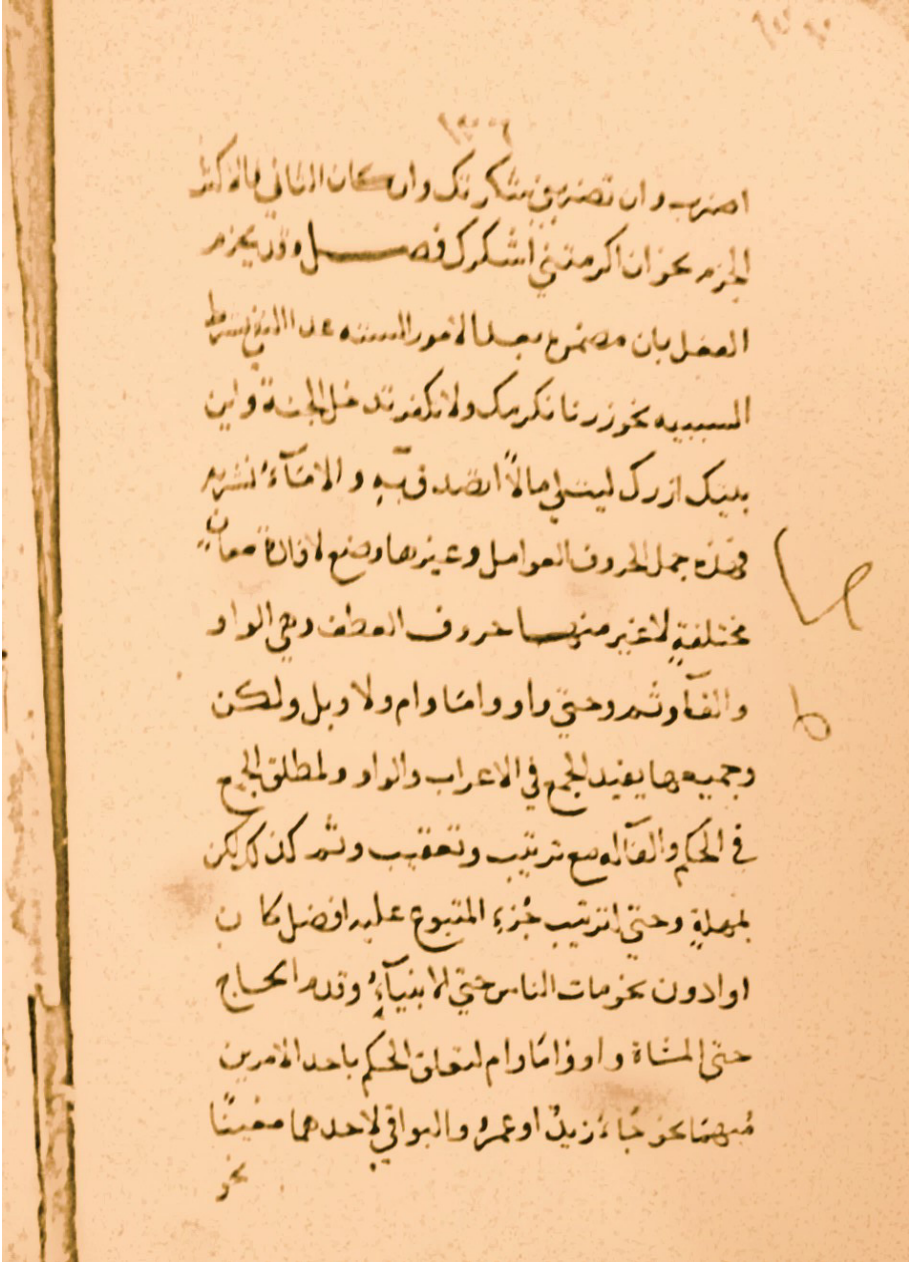 اضرب وان تضربني شكرتك وان كان الثاني فالاكثر
الجزم نحو ان اكرمتني اشكرك فصل وقد يجزم
الفعل بان مضمرة بعد الامور الستة عدا النفي بشرط
السببيه نحو زرنا نكرمك ولا تكفر تدخل الجنة واين
بيتك ازرك ليت لي مالاً اتصدق به و الا
فهذه جمل الحروف العوامل وغيرها وضع لافادة معانٍ
مختلفةٍ لا غير منها حروف العطف وهي الواو
والفآ وثم وحتي واو واما وام ولا وبل ولكن
وجميعها يفيد الجمع في الاعراب والواو ولمطلق الجمع
في الحكم والفآ له مع ترتيب وتعقيب وثم كذلك لكن
بمهلةٍ وحتي لترتيب جُزءِ المتبوع عليه افضل كان
او ادون نحو مات الناس حتي الانبيآءُ وقدم الحاج
حتي المشاة و او واما وام لتعلق الحكم باحد الامرين
مُبهمًا نحو جآء زيدٌ او عمرو والبواقي لاحدهما معينًا
نحو